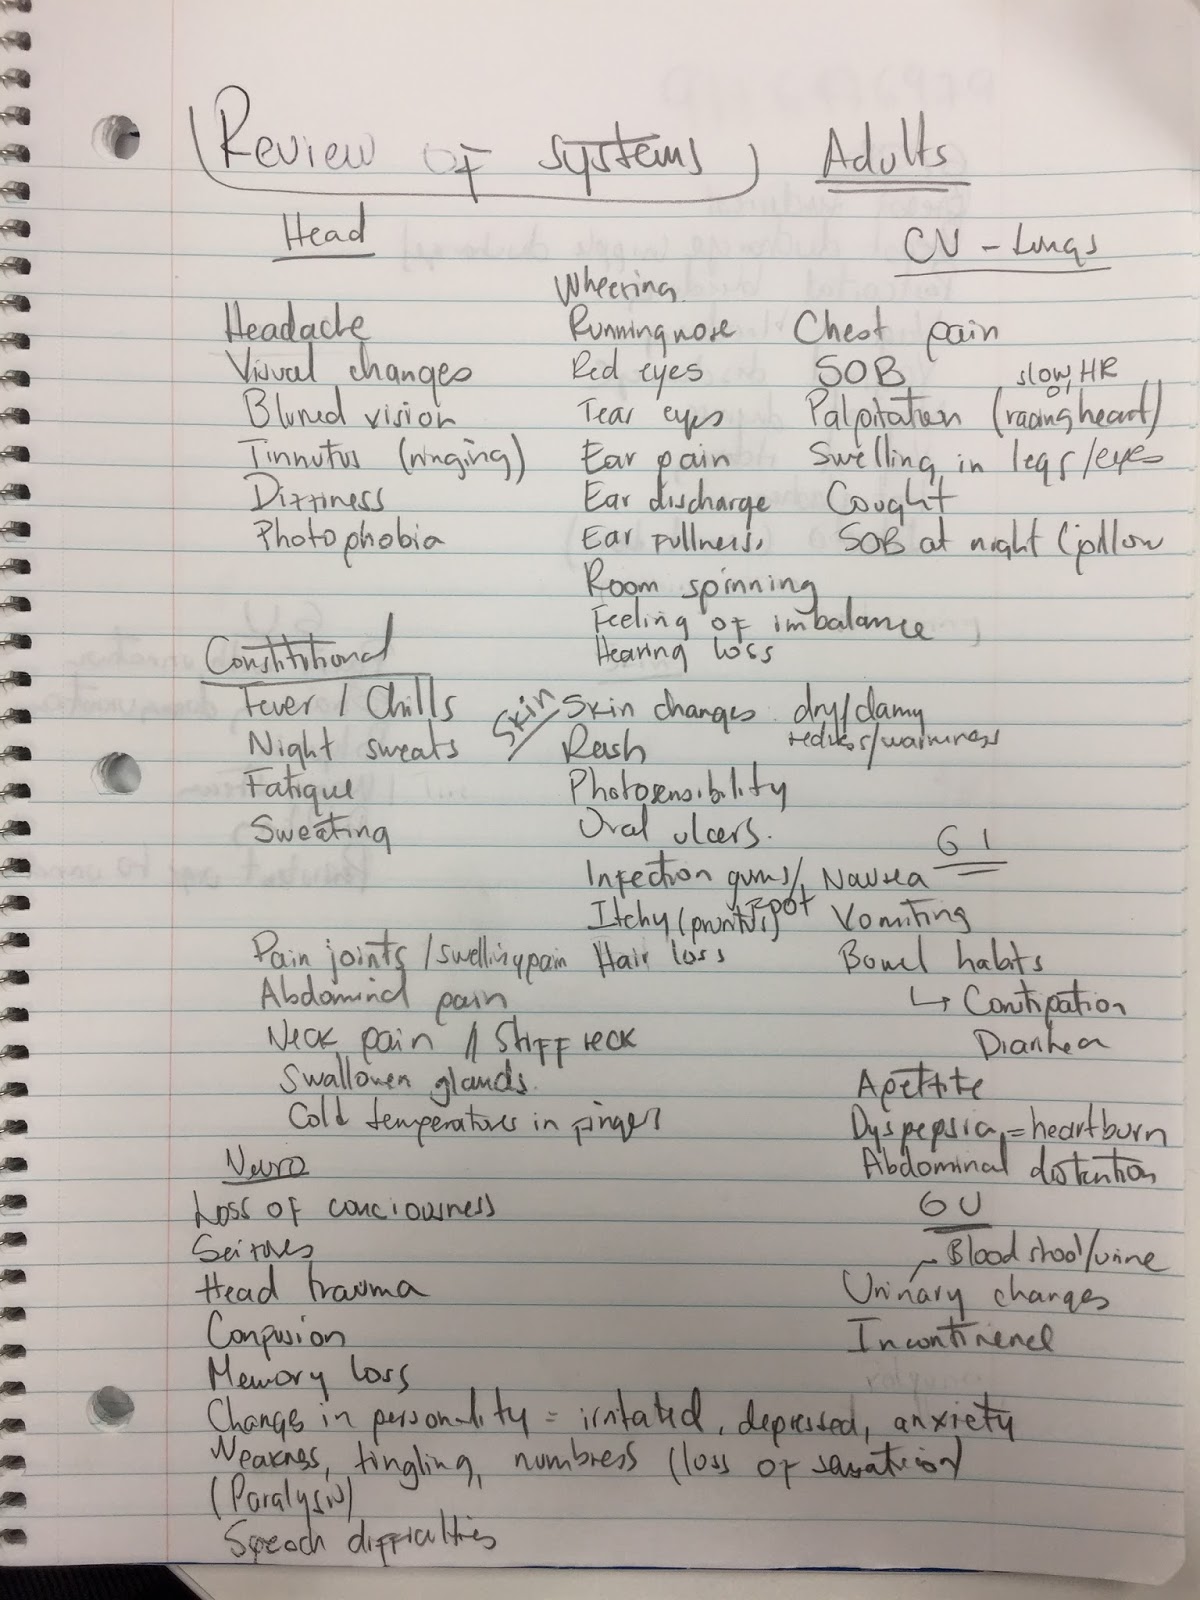 Review of systems Adults
Head
Headache
Visual changes
Blurred vision
Tinnutus (ringing)
Dizziness
Photophobia
Wheezing
Runningnose
Red eyes
Tear eyes
Ear pain
Ear discharge
Ear fullness,
Room spinning
Feeling of imbalance
Hearing loss
CV - Lungs
Chest pain
SOB
slow HR
or
Palpitation (racing heart)
Swelling in legs/eyes
Cought
SOB at night (pillow
Constitutional
Fever / Chills
Night sweats
Fatigue
Sweating
Pain joints /swelling pain
Abdominal pain
Neck pain // Stiff neck
Swallowen glands.
Cold temperatures in finger
Skin
Skin changes dry/clamy
redness/warmness
Rash
Photosensibility
Oral ulcers.
Infection gums/
Itchy (pruritus) spot
Hair loss
GI
Nausea
Vomiting
Bowel habits
↳ Constipation
Diarrhea
Apettite
Dyspepsia = heartburn
Abdominal distention
GU
Blood stool/urine
Urinary changes
Incontinence
Neuro
Loss of conciousness
Seizures
Head trauma
Confusion
Memory loss
Change in personality = irritated, depressed, anxiety
Weakness, tingling, numbness (loss of sensation)
(Paralysis)
Speech difficulties